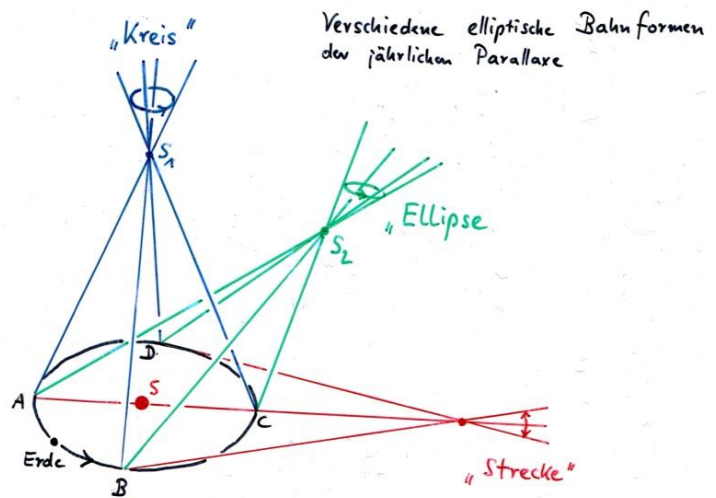 Verschiedene elliptische Bahnformen
der jährlichen Parallaxe
„Kreis"
S1
„Ellipse
S2
D
A
S
C
Erde
B
„Strecke"